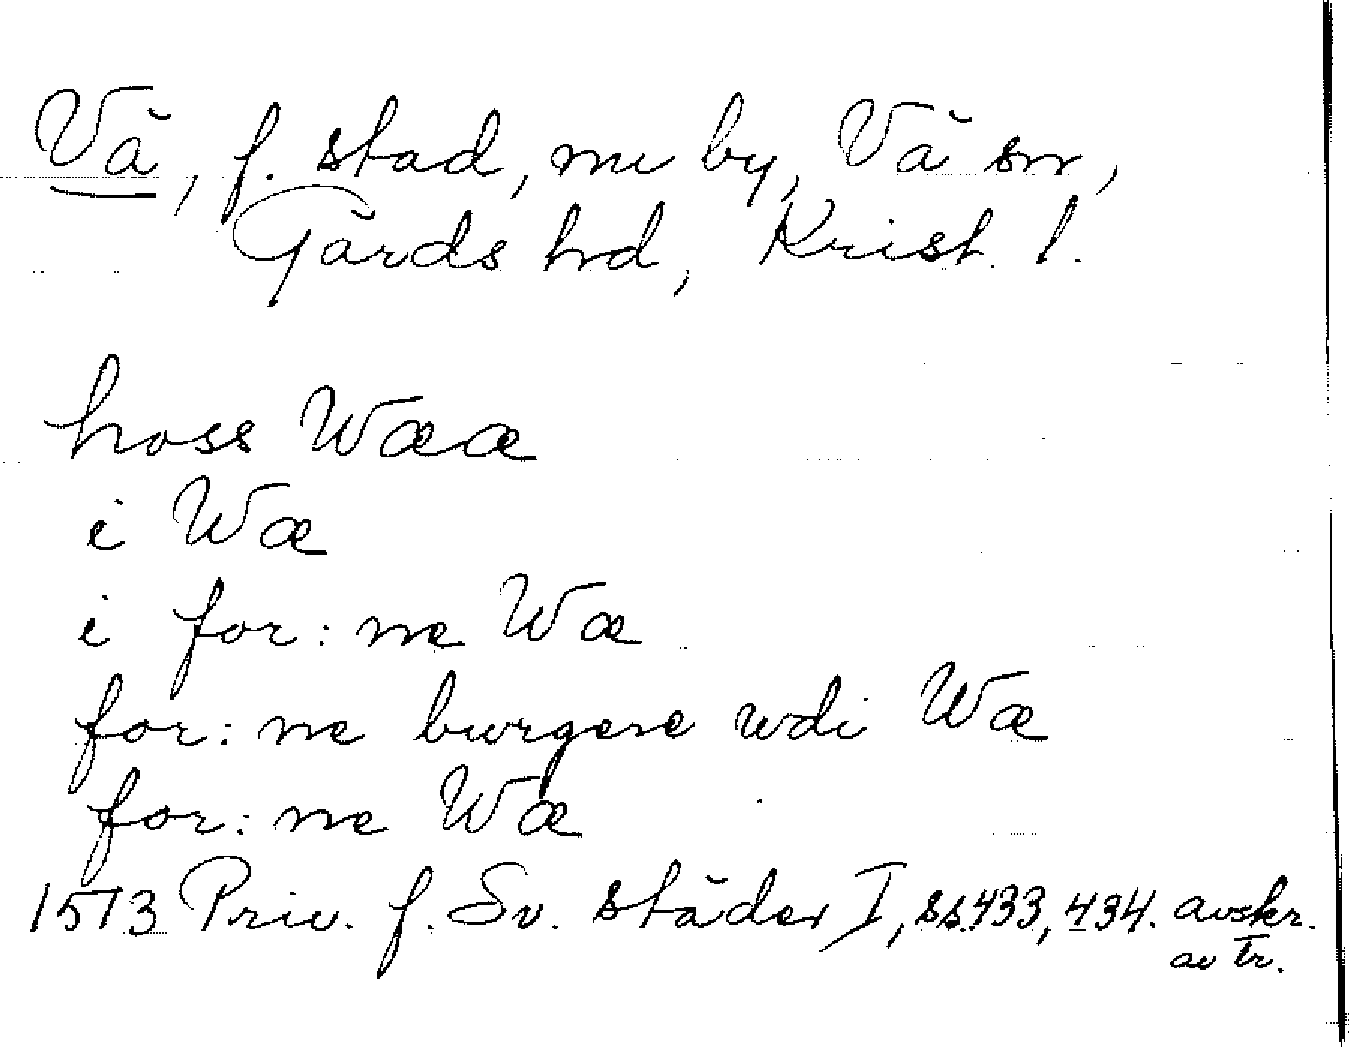 Vä, f. stad, nu by, Vä sn,
Gärds hd, Krist. l.
hoss Wææ
i Wæ
i for: ne Wæ
for: ne burgere udi Wæ
for: ne Wæ
1513 Priv. f. Sv. städer I, ss. 433, 434. avskr.
av tr.